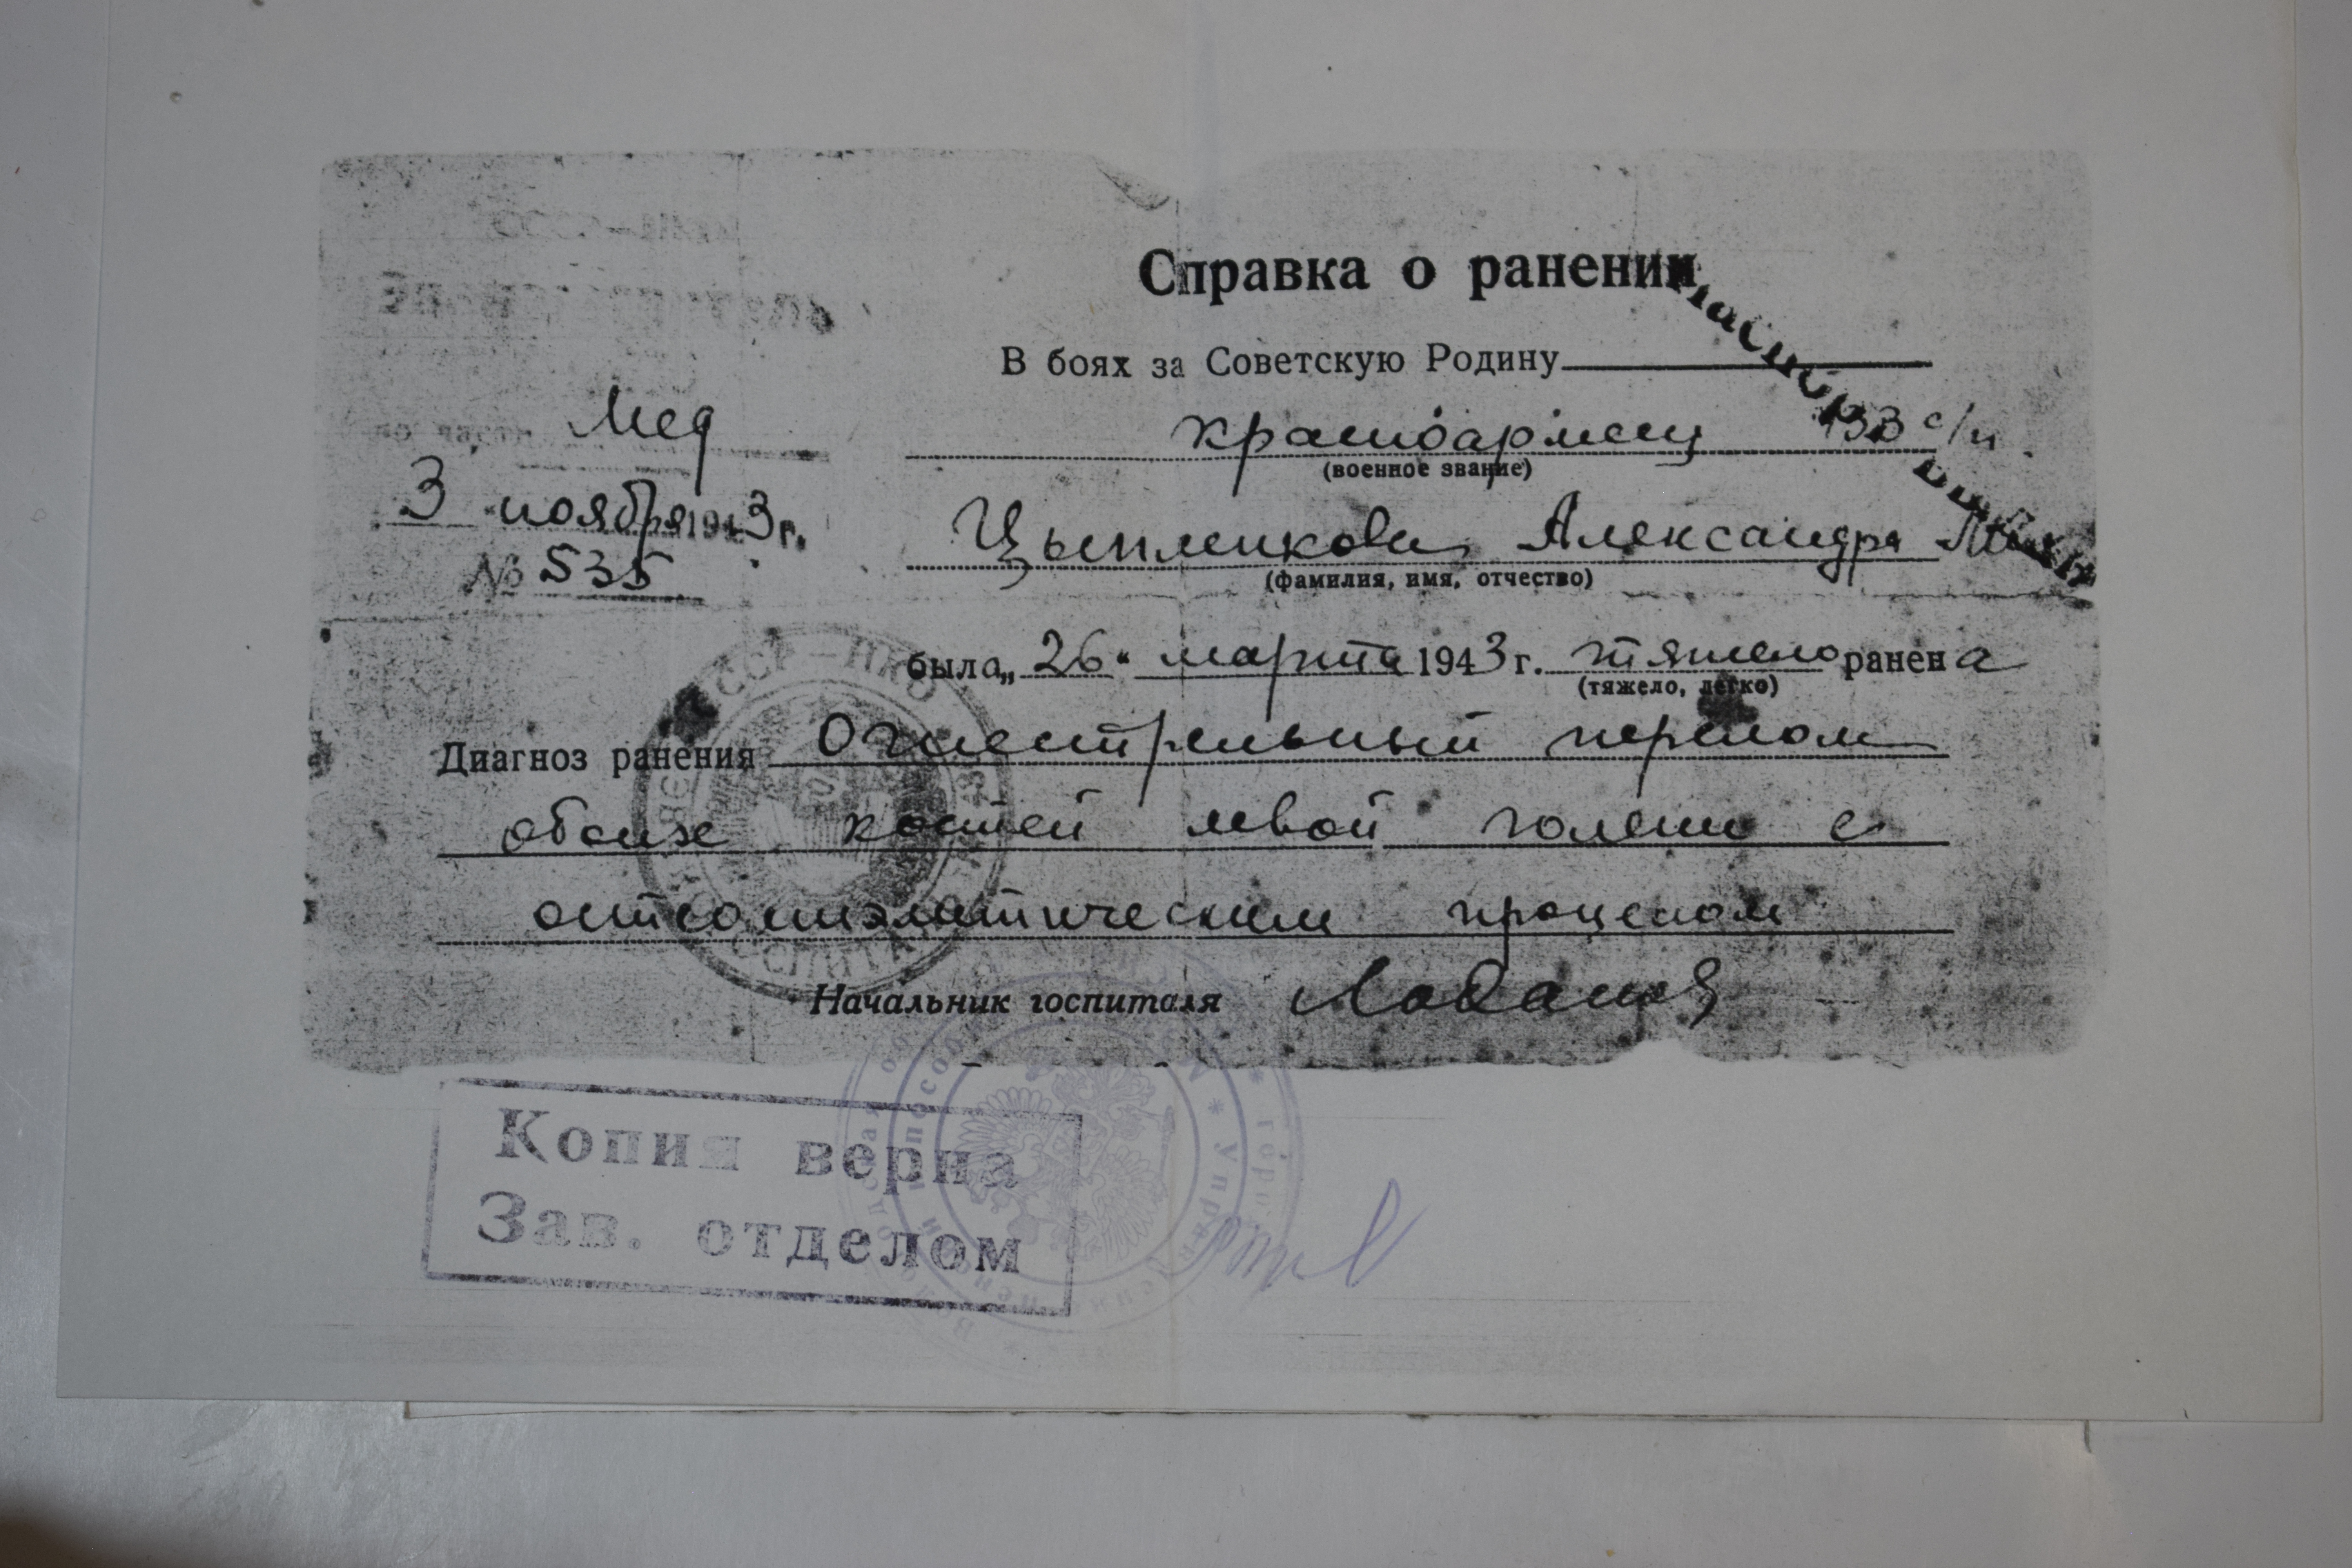 СССР—НКО
Справка о ранении
В боях за Советскую Родину
Мед
красноармеец 133 с/п
(военное звание)
3 ноября 1943 г.
№ 535
Цыпленкова Александра
(фамилия, имя, отчество)
была „26“ марта 1943 г. тяжело ранена
(тяжело, легко)
Диагноз ранения Огнестрельный перелом
обоих костей левой голени с
остеомиэлитическим процессом
Начальник госпиталя
Копия верна
Зав. отделом